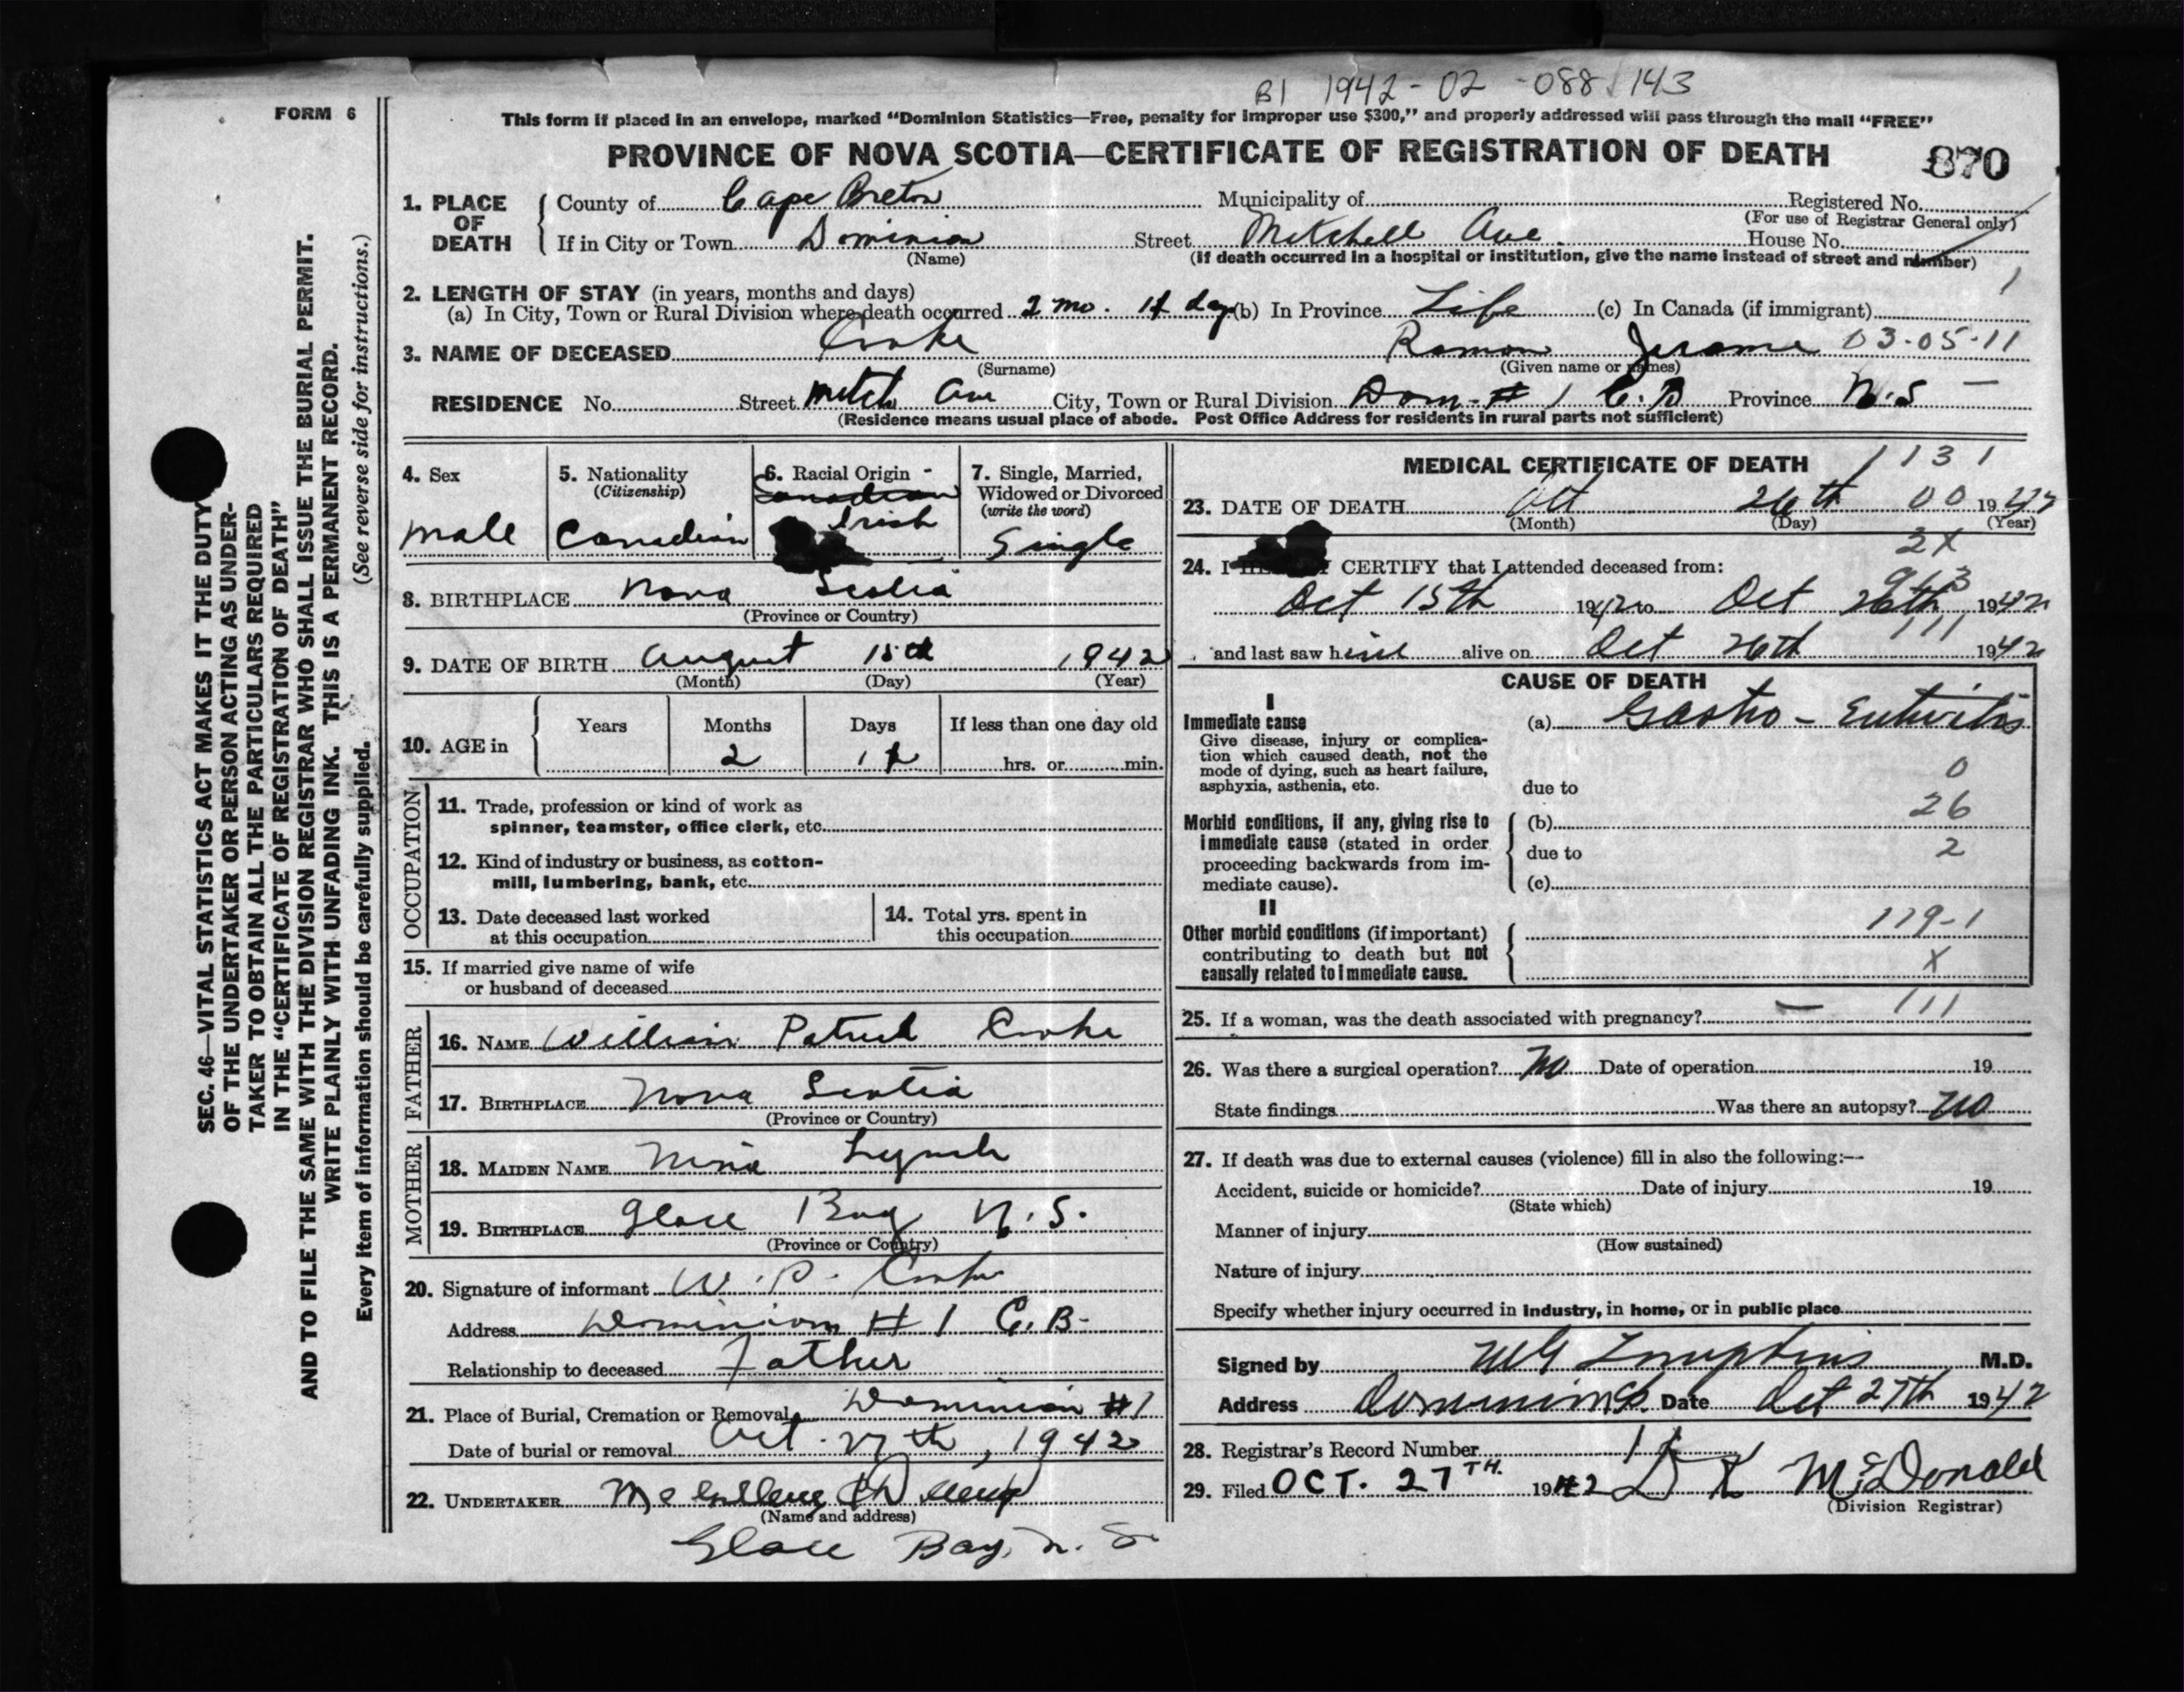 B1 1942-02-088143
FORM 6
This form if placed in an envelope, marked “Dominion Statistics—Free, penalty for improper use $300,” and properly addressed will pass through the mail “FREE”
PROVINCE OF NOVA SCOTIA—CERTIFICATE OF REGISTRATION OF DEATH 870
1. PLACE OF DEATH
County of Cape Breton Municipality of Registered No.
(For use of Registrar General only)
If in City or Town Dominion Street Mitchell Ave. House No.
(Name) (If death occurred in a hospital or institution, give the name instead of street and number)
2. LENGTH OF STAY (in years, months and days) 1
(a) In City, Town or Rural Division where death occurred 2 mo. 11 day (b) In Province Life (c) In Canada (if immigrant)
3. NAME OF DECEASED Cooke Ramon Jerome 03-05-11
(Surname) (Given name or names)
RESIDENCE No. Street Mitch Ave City, Town or Rural Division Dom. # 1 C.B Province N.S —
(Residence means usual place of abode. Post Office Address for residents in rural parts not sufficient)
4. Sex
male
5. Nationality
(Citizenship)
Canadian
6. Racial Origin -
Canadian
Irish
7. Single, Married,
Widowed or Divorced
(write the word)
Single
8. BIRTHPLACE Nova Scotia
(Province or Country)
9. DATE OF BIRTH August 15th 1942
(Month) (Day) (Year)
10. AGE in
Years Months Days If less than one day old
2 11 hrs. or min.
OCCUPATION
11. Trade, profession or kind of work as
spinner, teamster, office clerk, etc.
12. Kind of industry or business, as cotton-
mill, lumbering, bank, etc.
13. Date deceased last worked
at this occupation
14. Total yrs. spent in
this occupation
15. If married give name of wife
or husband of deceased
FATHER
16. NAME William Patrick Cooke
17. BIRTHPLACE Nova Scotia
(Province or Country)
MOTHER
18. MAIDEN NAME Nina Lynch
19. BIRTHPLACE Glace Bay N.S.
(Province or Country)
20. Signature of informant W. P. Cooke
Address Dominion # 1 C.B-
Relationship to deceased Father
21. Place of Burial, Cremation or Removal Dominion #1
Date of burial or removal Oct. 27th, 1942
22. UNDERTAKER
(Name and address)
Glace Bay, N. S.
MEDICAL CERTIFICATE OF DEATH 1131
23. DATE OF DEATH Oct 26th 00 1942
(Month) (Day) (Year)
2X
24. I CERTIFY that I attended deceased from:
963
Oct 15th 1942 to Oct 26th 1942
111
and last saw him alive on Oct 26th 1942
CAUSE OF DEATH
I
Immediate cause
Give disease, injury or complica-
tion which caused death, not the
mode of dying, such as heart failure,
asphyxia, asthenia, etc.
(a) Gastro-Enteritis
0
due to
26
Morbid conditions, if any, giving rise to
immediate cause (stated in order
proceeding backwards from im-
mediate cause).
(b)
due to 2
(c)
II
Other morbid conditions (if important)
contributing to death but not
causally related to immediate cause.
119-1
X
25. If a woman, was the death associated with pregnancy? — 111
26. Was there a surgical operation? No Date of operation 19
State findings Was there an autopsy? No
27. If death was due to external causes (violence) fill in also the following:--
Accident, suicide or homicide? Date of injury 19
(State which)
Manner of injury
(How sustained)
Nature of injury
Specify whether injury occurred in industry, in home, or in public place
Signed by MG Tompkins M.D.
Address Dominion Date Oct 27th 1942
28. Registrar's Record Number
29. Filed OCT. 27TH. 1942 D K McDonald
(Division Registrar)
SEC. 46—VITAL STATISTICS ACT MAKES IT THE DUTY
OF THE UNDERTAKER OR PERSON ACTING AS UNDER-
TAKER TO OBTAIN ALL THE PARTICULARS REQUIRED
IN THE “CERTIFICATE OF REGISTRATION OF DEATH”
AND TO FILE THE SAME WITH THE DIVISION REGISTRAR WHO SHALL ISSUE THE BURIAL PERMIT.
WRITE PLAINLY WITH UNFADING INK. THIS IS A PERMANENT RECORD.
Every item of information should be carefully supplied. (See reverse side for instructions.)